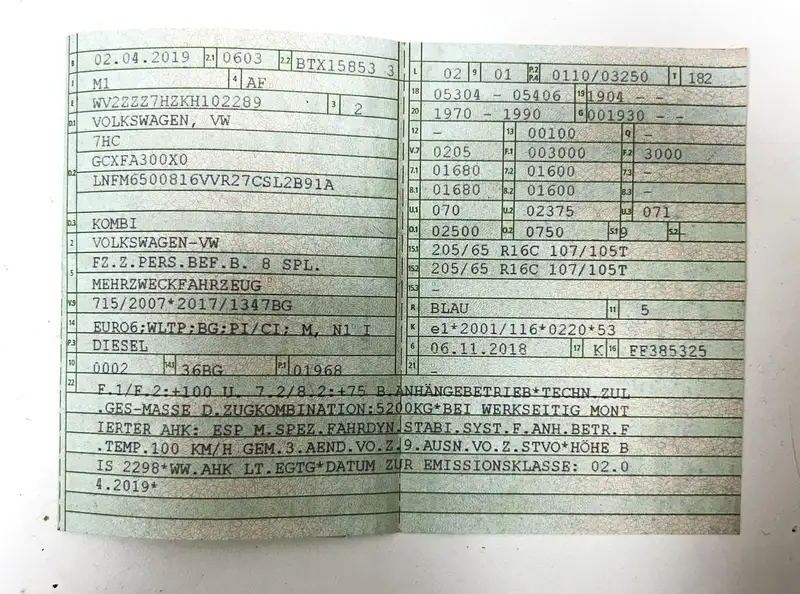 B 02.04.2019 2.1 0603 2.2 BTX15853 3
J M1 4 AF
E WV2ZZZ7HZKH102289 3 2
D.1 VOLKSWAGEN, VW
7HC
D.2 GCXFA300X0
LNFM6500816VVR27CSL2B91A
D.3 KOMBI
2 VOLKSWAGEN-VW
5 FZ.Z.PERS.BEF.B. 8 SPL.
MEHRZWECKFAHRZEUG
V.9 715/2007*2017/1347BG
14 EURO6;WLTP;BG;PI/CI; M, N1 I
P.3 DIESEL
10 0002 14.1 36BG P.1 01968
L 02 9 01 P.2 P.4 0110/03250 T 182
18 05304 - 05406 19 1904 - -
20 1970 - 1990 G 001930 - -
12 - 13 00100 Q -
V.7 0205 F.1 003000 F.2 3000
7.1 01680 7.2 01600 7.3 -
8.1 01680 8.2 01600 8.3 -
U.1 070 U.2 02375 U.3 071
O.1 02500 O.2 0750 S.1 9 S.2
15.1 205/65 R16C 107/105T
15.2 205/65 R16C 107/105T
15.3 -
R BLAU 11 5
K e1*2001/116*0220*53
6 06.11.2018 17 K 16 FF385325
21 -
22 F.1/F.2:+100 U. 7.2/8.2:+75 B.ANHÄNGEBETRIEB*TECHN.ZUL
.GES-MASSE D.ZUGKOMBINATION:5200KG*BEI WERKSEITIG MONT
IERTER AHK: ESP M.SPEZ.FAHRDYN.STABI.SYST.F.ANH.BETR.F
.TEMP.100 KM/H GEM.3.AEND.VO.Z.9.AUSN.VO.Z.STVO*HÖHE B
IS 2298*WW.AHK LT.EGTG*DATUM ZUR EMISSIONSKLASSE: 02.0
4.2019*